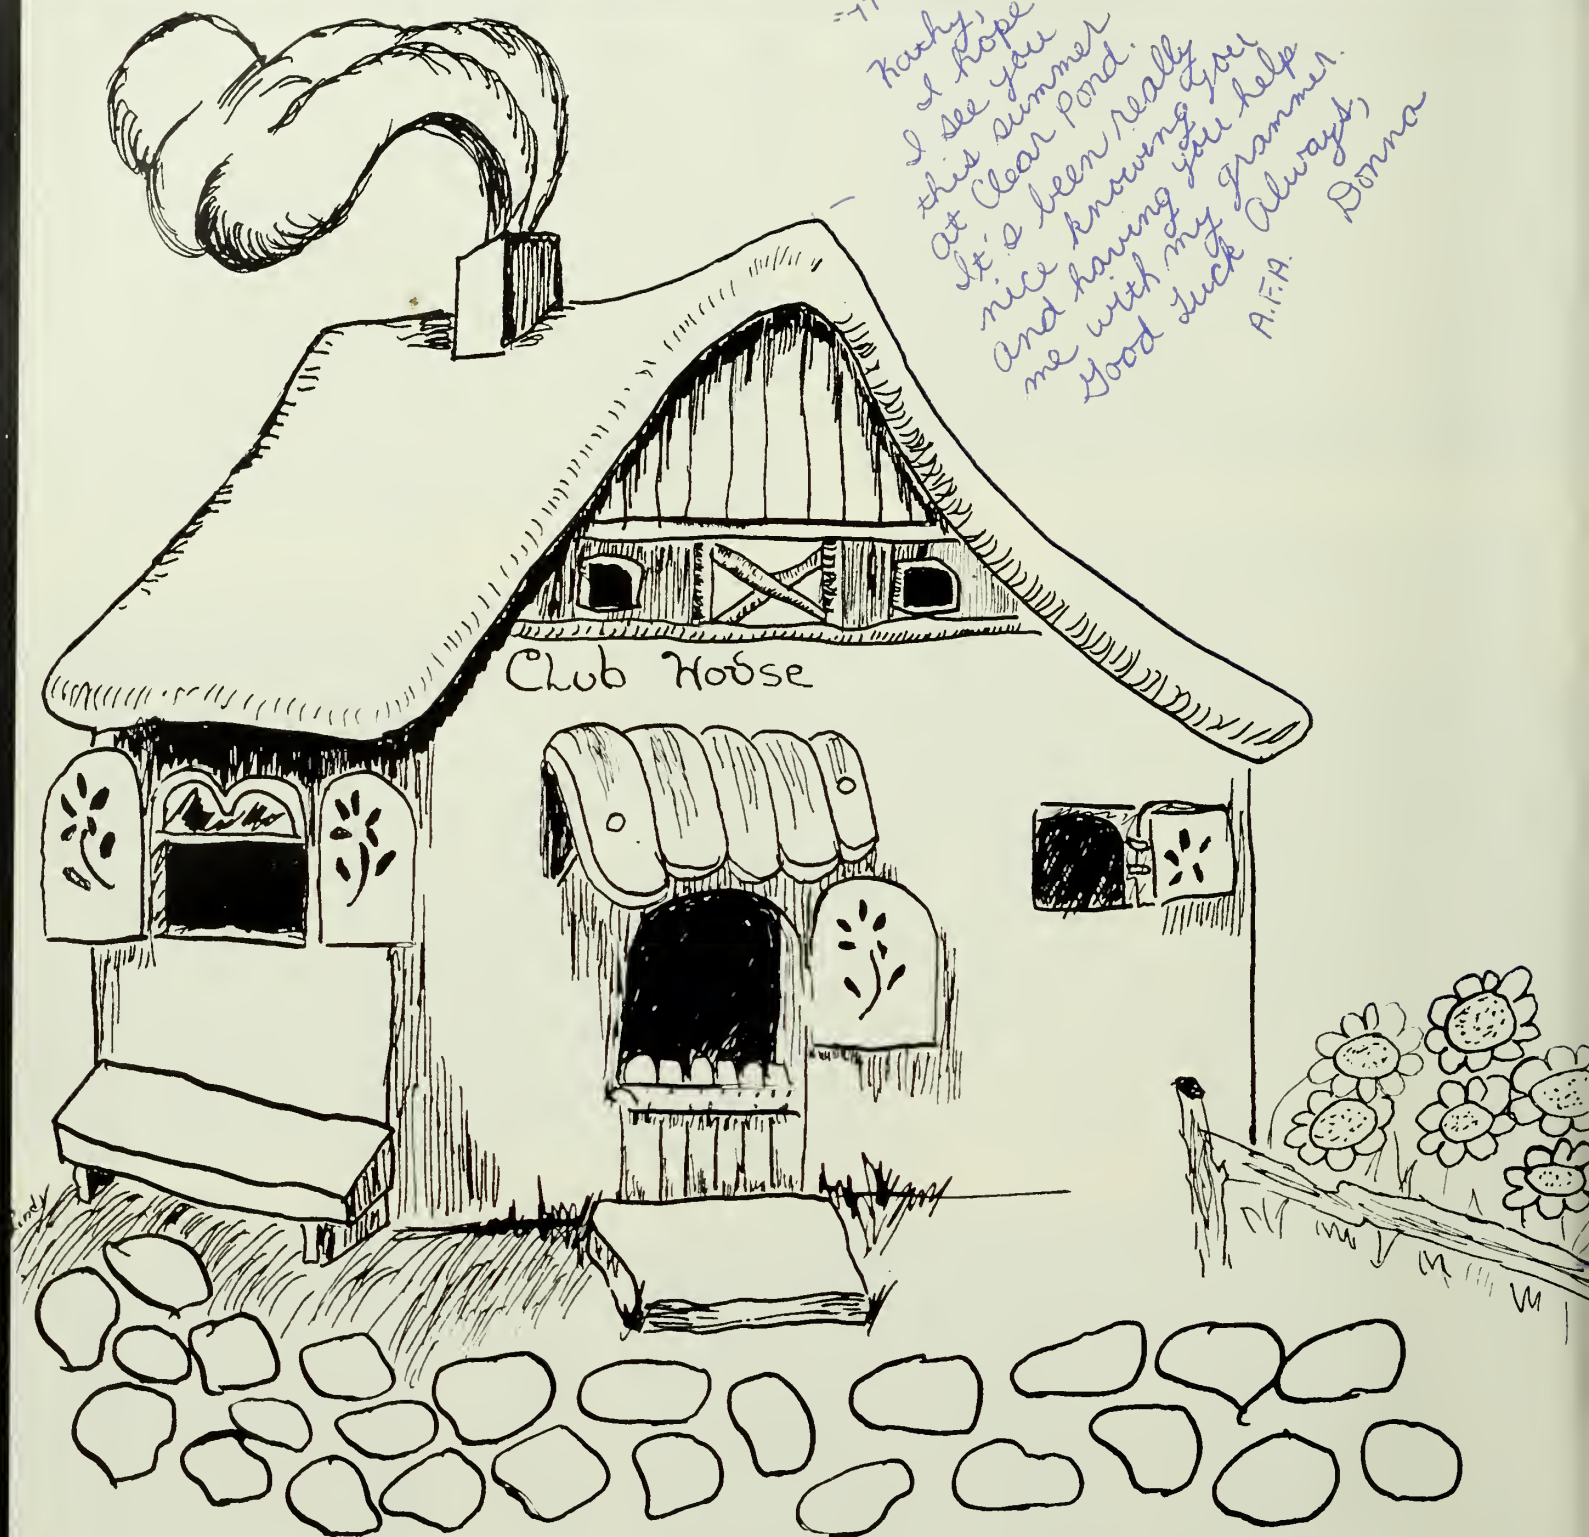 =77
Kathy,
I hope
I see you
this summer
at Clear Pond.
It's been really
nice knowing you
and having you help
me with my grammer.
Good Luck Always,
Donna
A.F.A.
CLub House